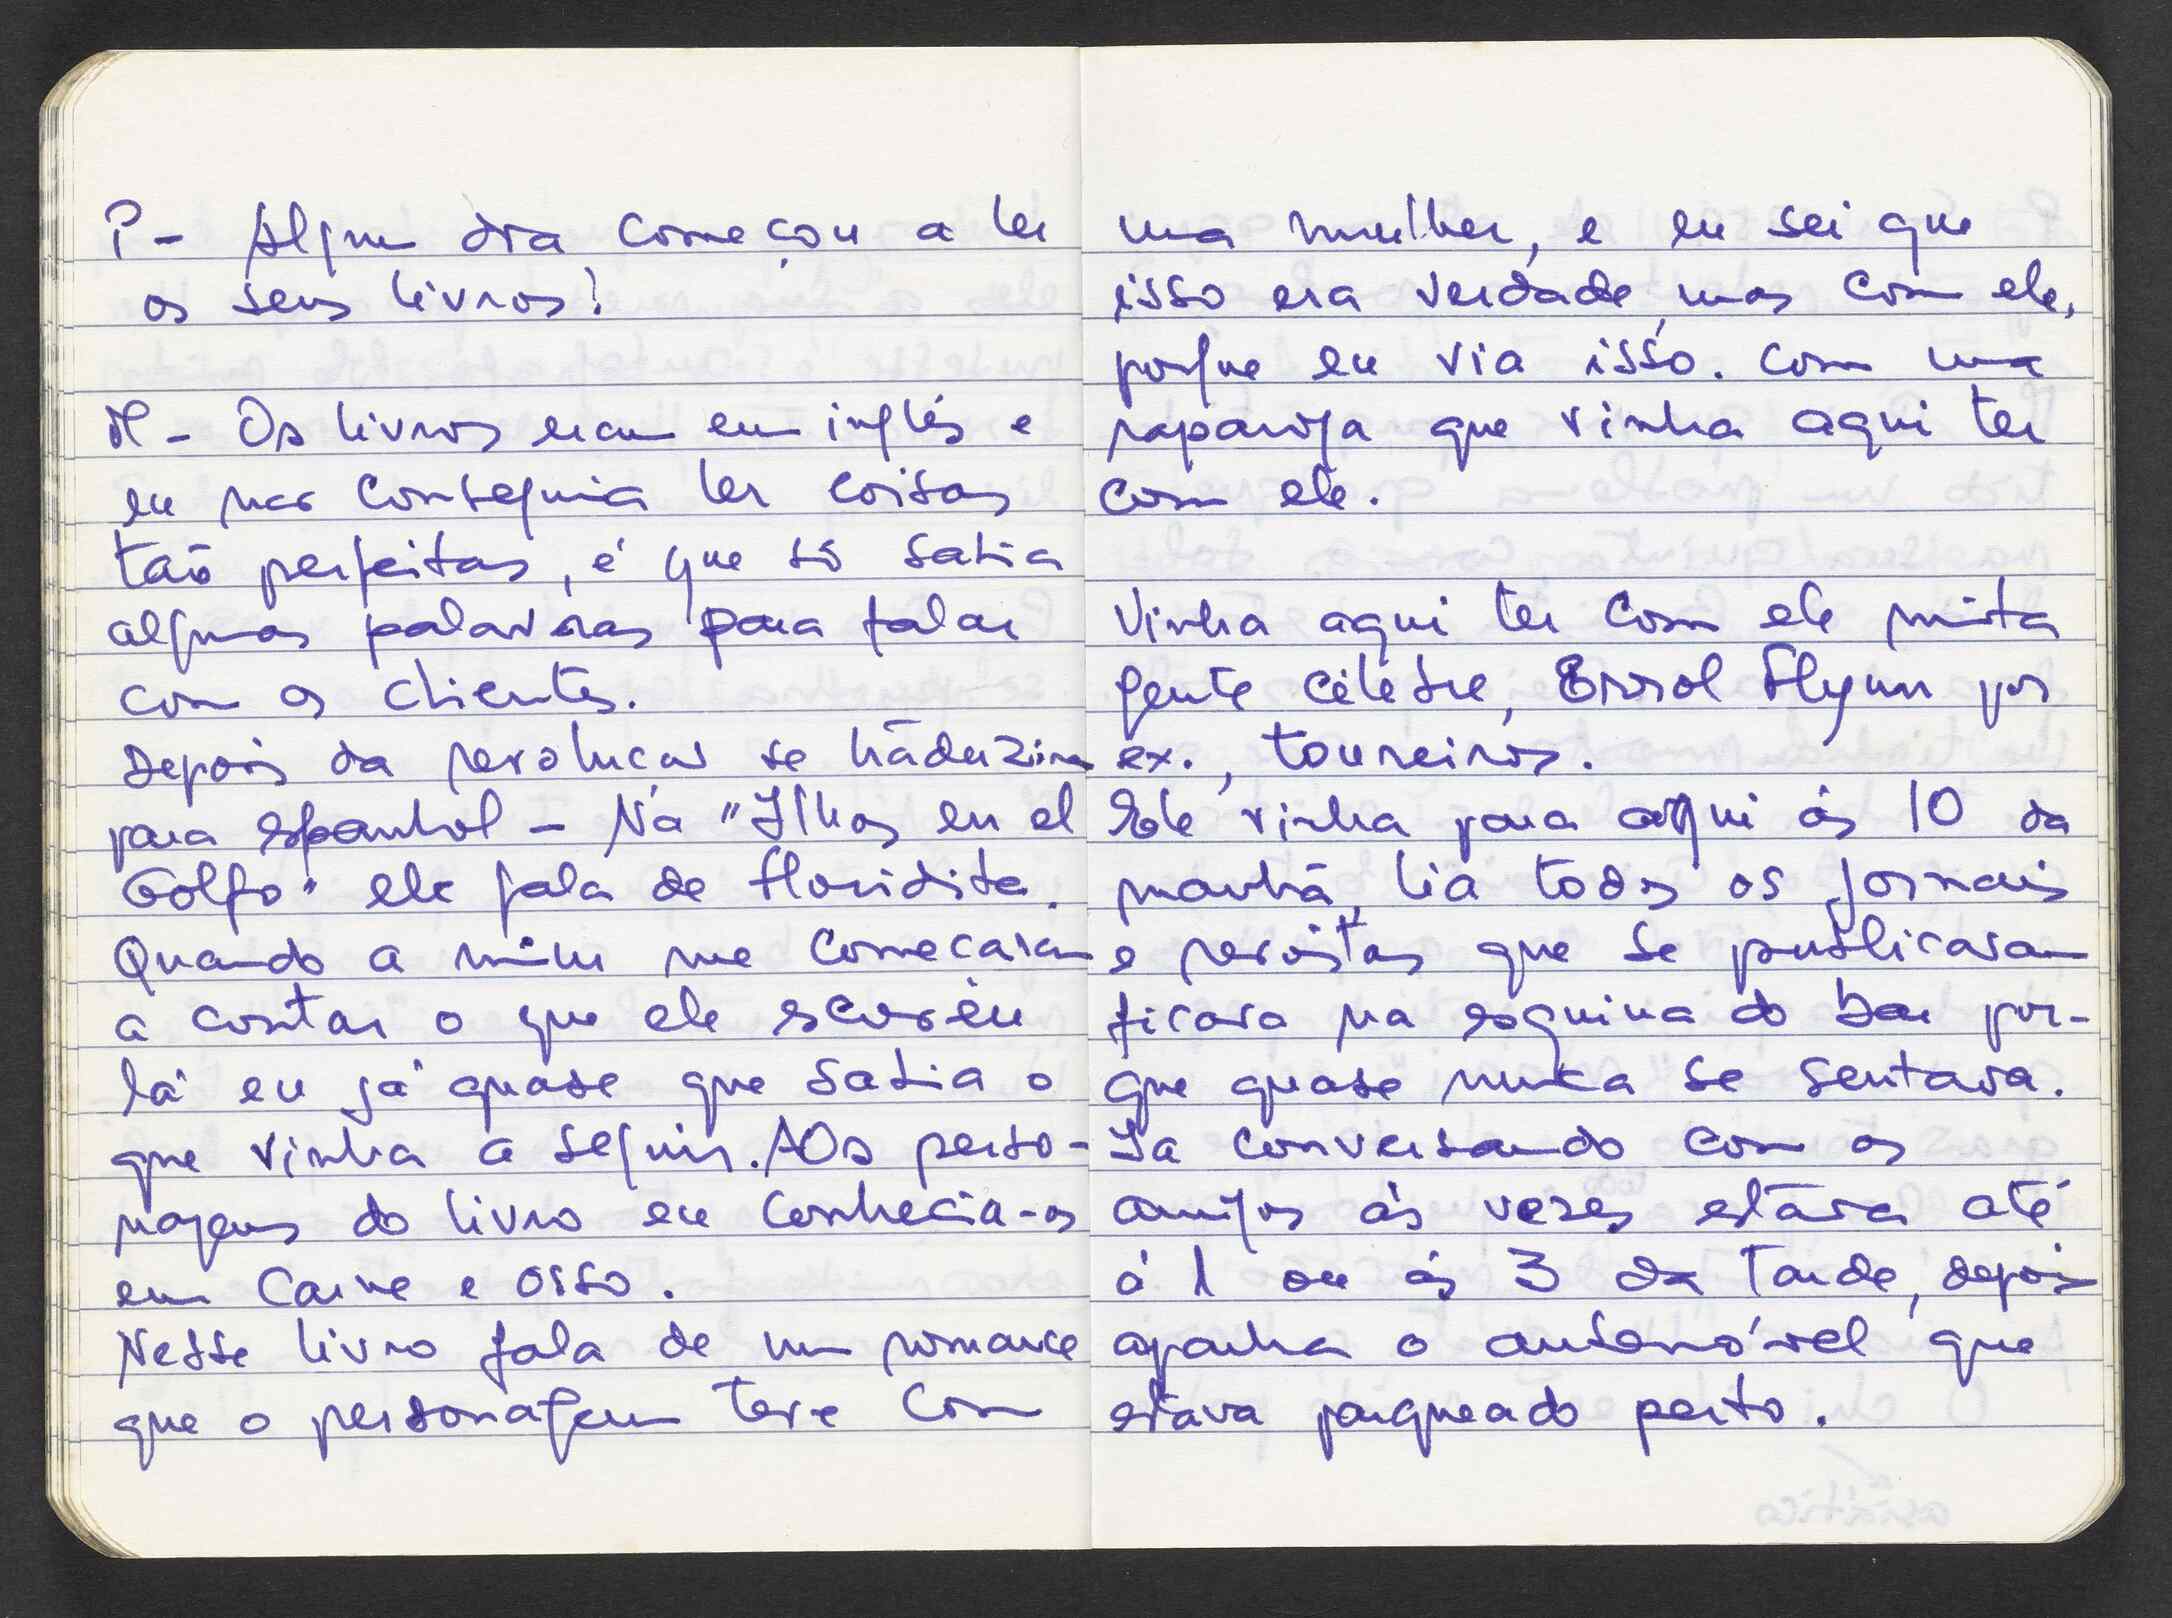 P - Algum dia começou a ler
os seus livros?
M - Os livros eram em inglês e
eu não conseguia ler coisas
tão perfeitas, é que só sabia
algumas palavras para falar
com os clientes.
Depois da revolução se traduziram
para espanhol - Na "Ilhas en el
Golfo" ele fala de Floridita.
Quando a mim me começaram
a contar o que ele escreveu
lá eu já quase que sabia o
que vinha a seguir. Os perso-
nagens do livro eu conhecia-os
em carne e osso.
Nesse livro fala de um romance
que o personagem teve com
uma mulher, e eu sei que
isso era verdade, mas com ele,
porque eu via isso. Com uma
rapariga que vinha aqui ter
com ele.
Vinha aqui ter com ele muita
gente célebre, Errol Flynn por
ex., toureiros.
Ele vinha para aqui às 10 da
manhã, lia todos os jornais
e revistas que se publicavam
ficava na esquina do bar por-
que quase nunca se sentava.
Ia conversando com os
amigos às vezes estava até
à 1 ou às 3 da tarde, depois
apanha o automóvel que
estava parqueado perto.